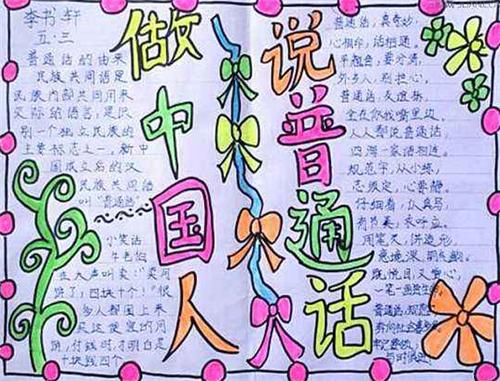 李书轩
五.三
普通话的由来
民族共同语是
民族内部共同用来
交际的语言,是识
别一个独立民族的
主要标志之一。新中
国成立后的汉
民族共同语
叫“普通话”
小笑话
在大声叫卖:
四块十个!”很
多人都围上来
买这便宜的
付钱时,才明白是
十块钱四个
做中国人
说普通话
普通话,真奇妙,
心相印,话相通。
平翘舌,要分清,
外乡人,别担心。
普通话,友谊桥,
全在你我嘴里边。
人人都说普通话,
四海一家语相连。
规范字,从小练,
态须定,心要静。
仔细看,认真写,
有节奏,求呼应。
用笔灵,讲造形,
意境深,
既悦目,又赏心。
一笔一画
普通话,规范字,
与时俱进